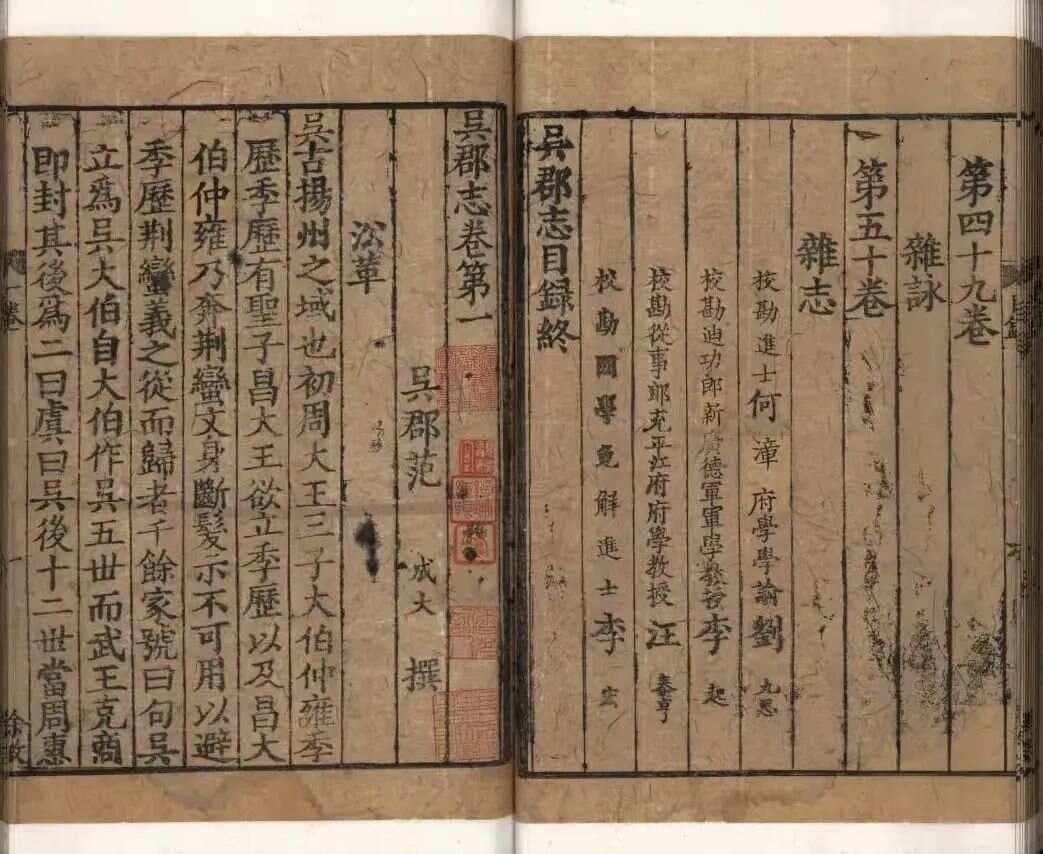 第四十九卷
雜詠
第五十卷
雜志
校勘進士何漳府學學諭劉九思
校勘迪功郎新廣德軍軍學教授李起
校勘從事郎充平江府府學教授汪泰亨
校勘國學免解進士李宏
吳郡志目録終
吳郡志卷第一
吳郡范成大撰
沿革
吳古揚州之域也初周大王三子大伯仲雍季
歷季歷有聖子昌大王欲立季歷以及昌大
伯仲雍乃奔荆蠻文身斷髮示不可用以避
季歷荆蠻義之從而歸者千餘家號曰句吳
立爲吳大伯自大伯作吳五世而武王克商
即封其後爲二曰虞曰吳後十二世當周惠